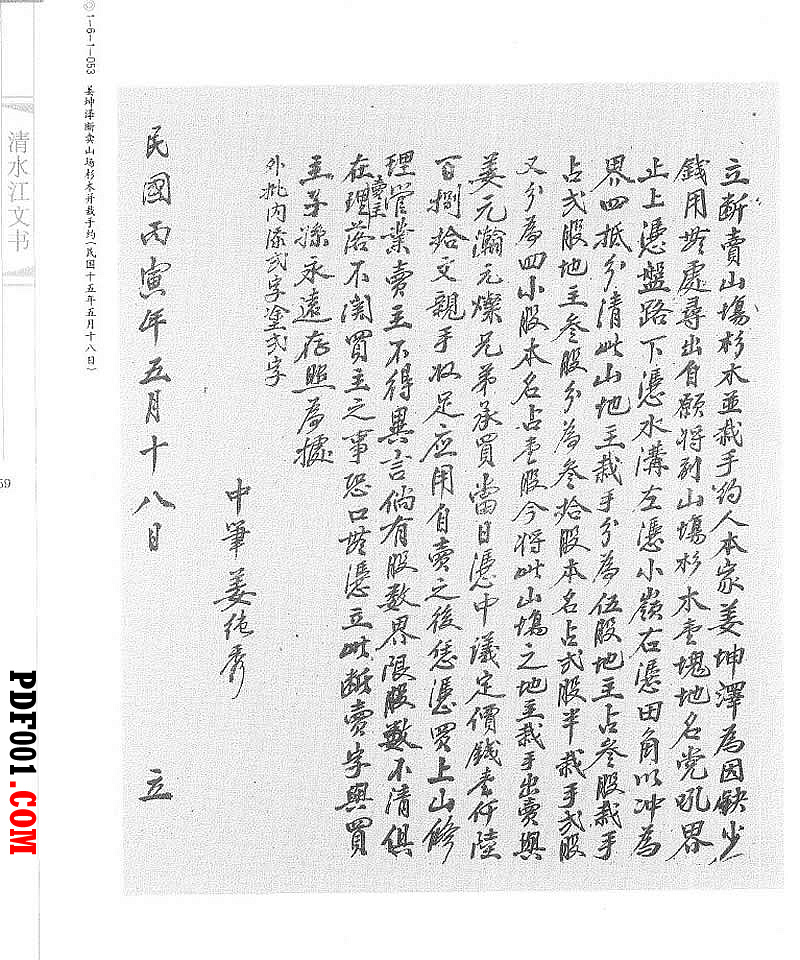 立断賣山塲杉木並栽手約人本家姜坤澤為因缺少
錢用無處尋出自願將到山塲杉木壹塊地名党吼界
止上憑盤路下憑水溝左憑小嶺右憑田角以冲為
界四抵分清此山地主栽手分為伍股地主占叁股栽手
占弍股地主叁股分為叁拾股本名占弍股半栽手弍股
又分為四小股本名占壹股今將此山塲之地主栽手出賣與
姜元瀚元燦兄弟承買當日憑中議定價錢壹仟陸
百捌拾文親手收足应用自賣之後恁憑買上山修
理管業賣主不得異言倘有股数界限股數不清俱
在賣主理落不関買主之事恐口無憑立此断賣字與買
主子孫永遠存照為據
外批內添弍字塗弍字
中筆姜純秀
民國丙寅年五月十八日 立
1-6-1-053 姜坤泽断卖山场杉木并栽手约(民国十五年五月十八日)
清水江文书
59
PDF001.COM